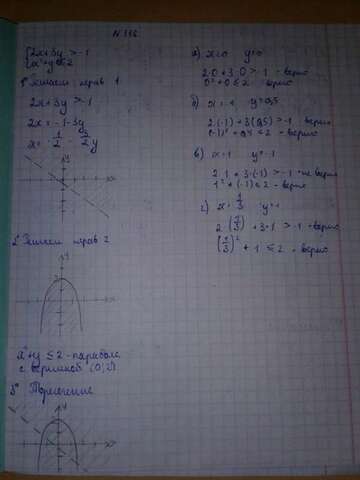 N 136
{2x+3y>-1
{x²+y≤2
1° Решаем нрав 1
2x+3y>-1
2x=-1-3y
x=-1/2-3/2y
y
x
2° Решаем нрав 2
y
x
x²+y≤2-парабола
с вершиной (0;2)
3° Пересечение
y
x
а) x=0 y=0
2·0+3·0>-1 - верно
0²+0≤2 - верно
б) x=-1 y=0,5
2·(-1)+3(0,5)>-1 - верно
(-1)²+0,5≤2 - верно
в) x=1 y=-1
2·1+3·(-1)>-1 - не верно
1²+(-1)≤2 - верно
г) x=1/3 y=1
+3·1>-1 - верно
+1≤2 - верно